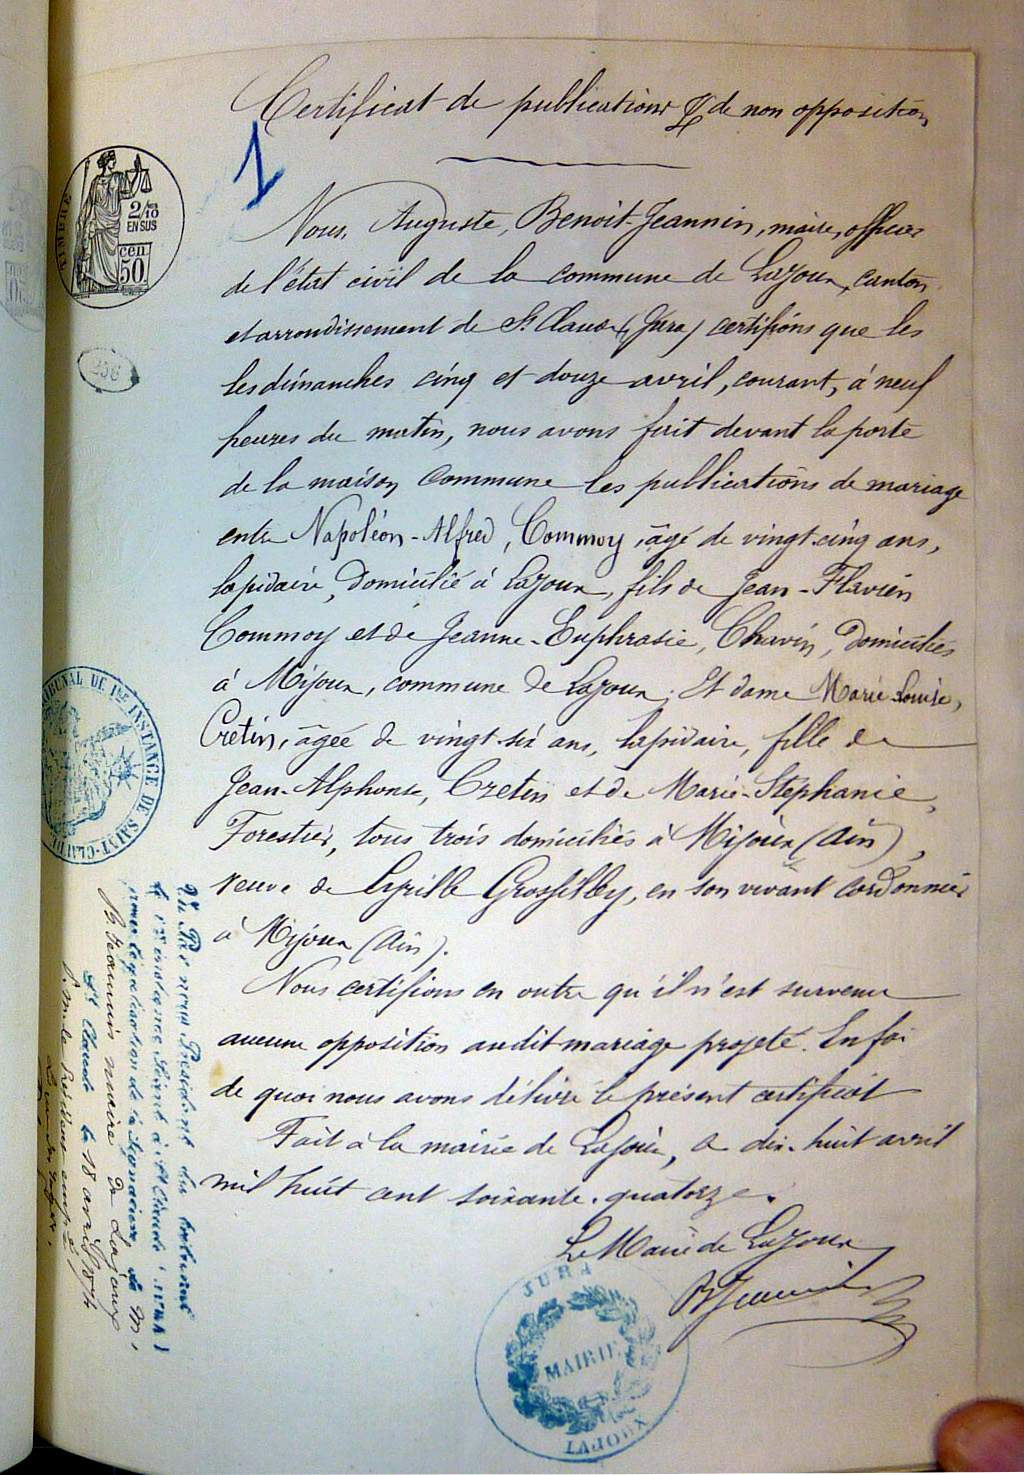 Certificat de publications & de non opposition
1
TIMBRE
2/10
EN SUS
cen.
50
256
Nous, Auguste, Benoit-Jeannin, maire, officier
de l'état civil de la commune de Lajoux, canton
et arrondissement de St Claude (Jura) certifions que les
les dimanches cinq et douze avril, courant, à neuf
heures du matin, nous avons fait devant la porte
de la maison commune les publications de mariage
entre Napoléon-Alfred, Commoy, âgé de vingt-cinq ans,
lapidaire, domicilié à Lajoux, fils de Jean-Flavien
Commoy et de Jeanne-Euphrasie, Chavin, domiciliés
à Mijoux, commune de Lajoux. Et dame Marie Louise,
Cretin, âgée de vingt-six ans, lapidaire, fille de
Jean-Alphonse, Cretin et de Marie-Stéphanie,
Forestier, tous trois domiciliés à Mijoux (Ain),
veuve de Cyrille Grosfilley, en son vivant cordonnier
à Mijoux (Ain).
Nous certifions en outre qu'il n'est survenu
aucune opposition audit mariage projeté. En foi
de quoi nous avons délivré le présent certificat
Fait à la mairie de Lajoux, le dix-huit avril
mil huit cent soixante-quatorze.
Le Maire de Lajoux
BJeannin
JURA
MAIRIE
LAJOUX
TRIBUNAL DE 1re INSTANCE DE SAINT-CLAUDE
Vu Par nous Président du tribunal
de 1re instance séant à St Claude (JURA)
pour légalisation de la signature de M.
B. Jeannin maire de Lajoux
St Claude le 18 avril 1874